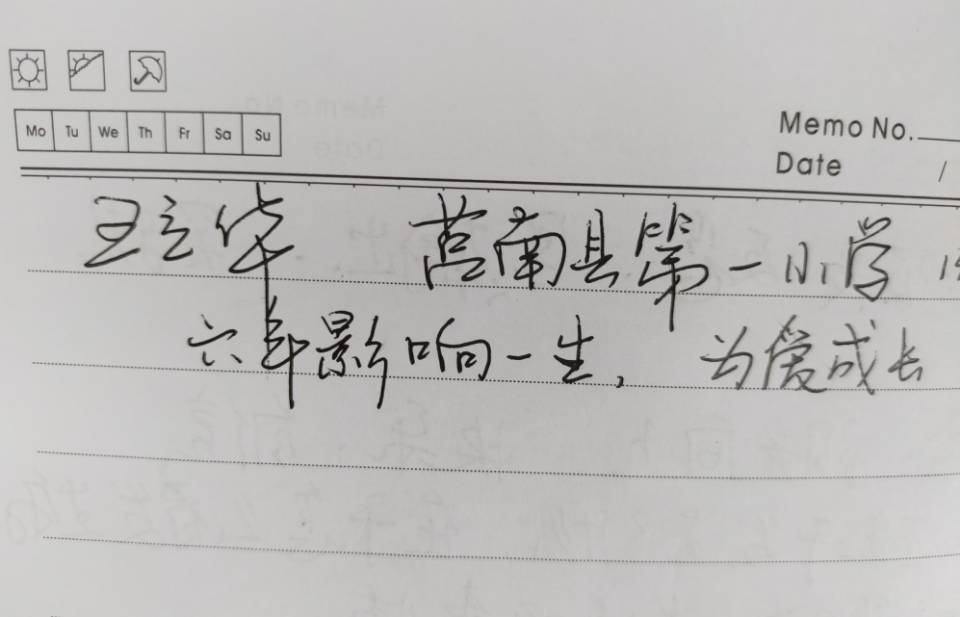 Mo Tu We Th Fr Sa Su
Memo No.
Date /
王立华 莒南县第一小学
六年影响一生, 为爱成长